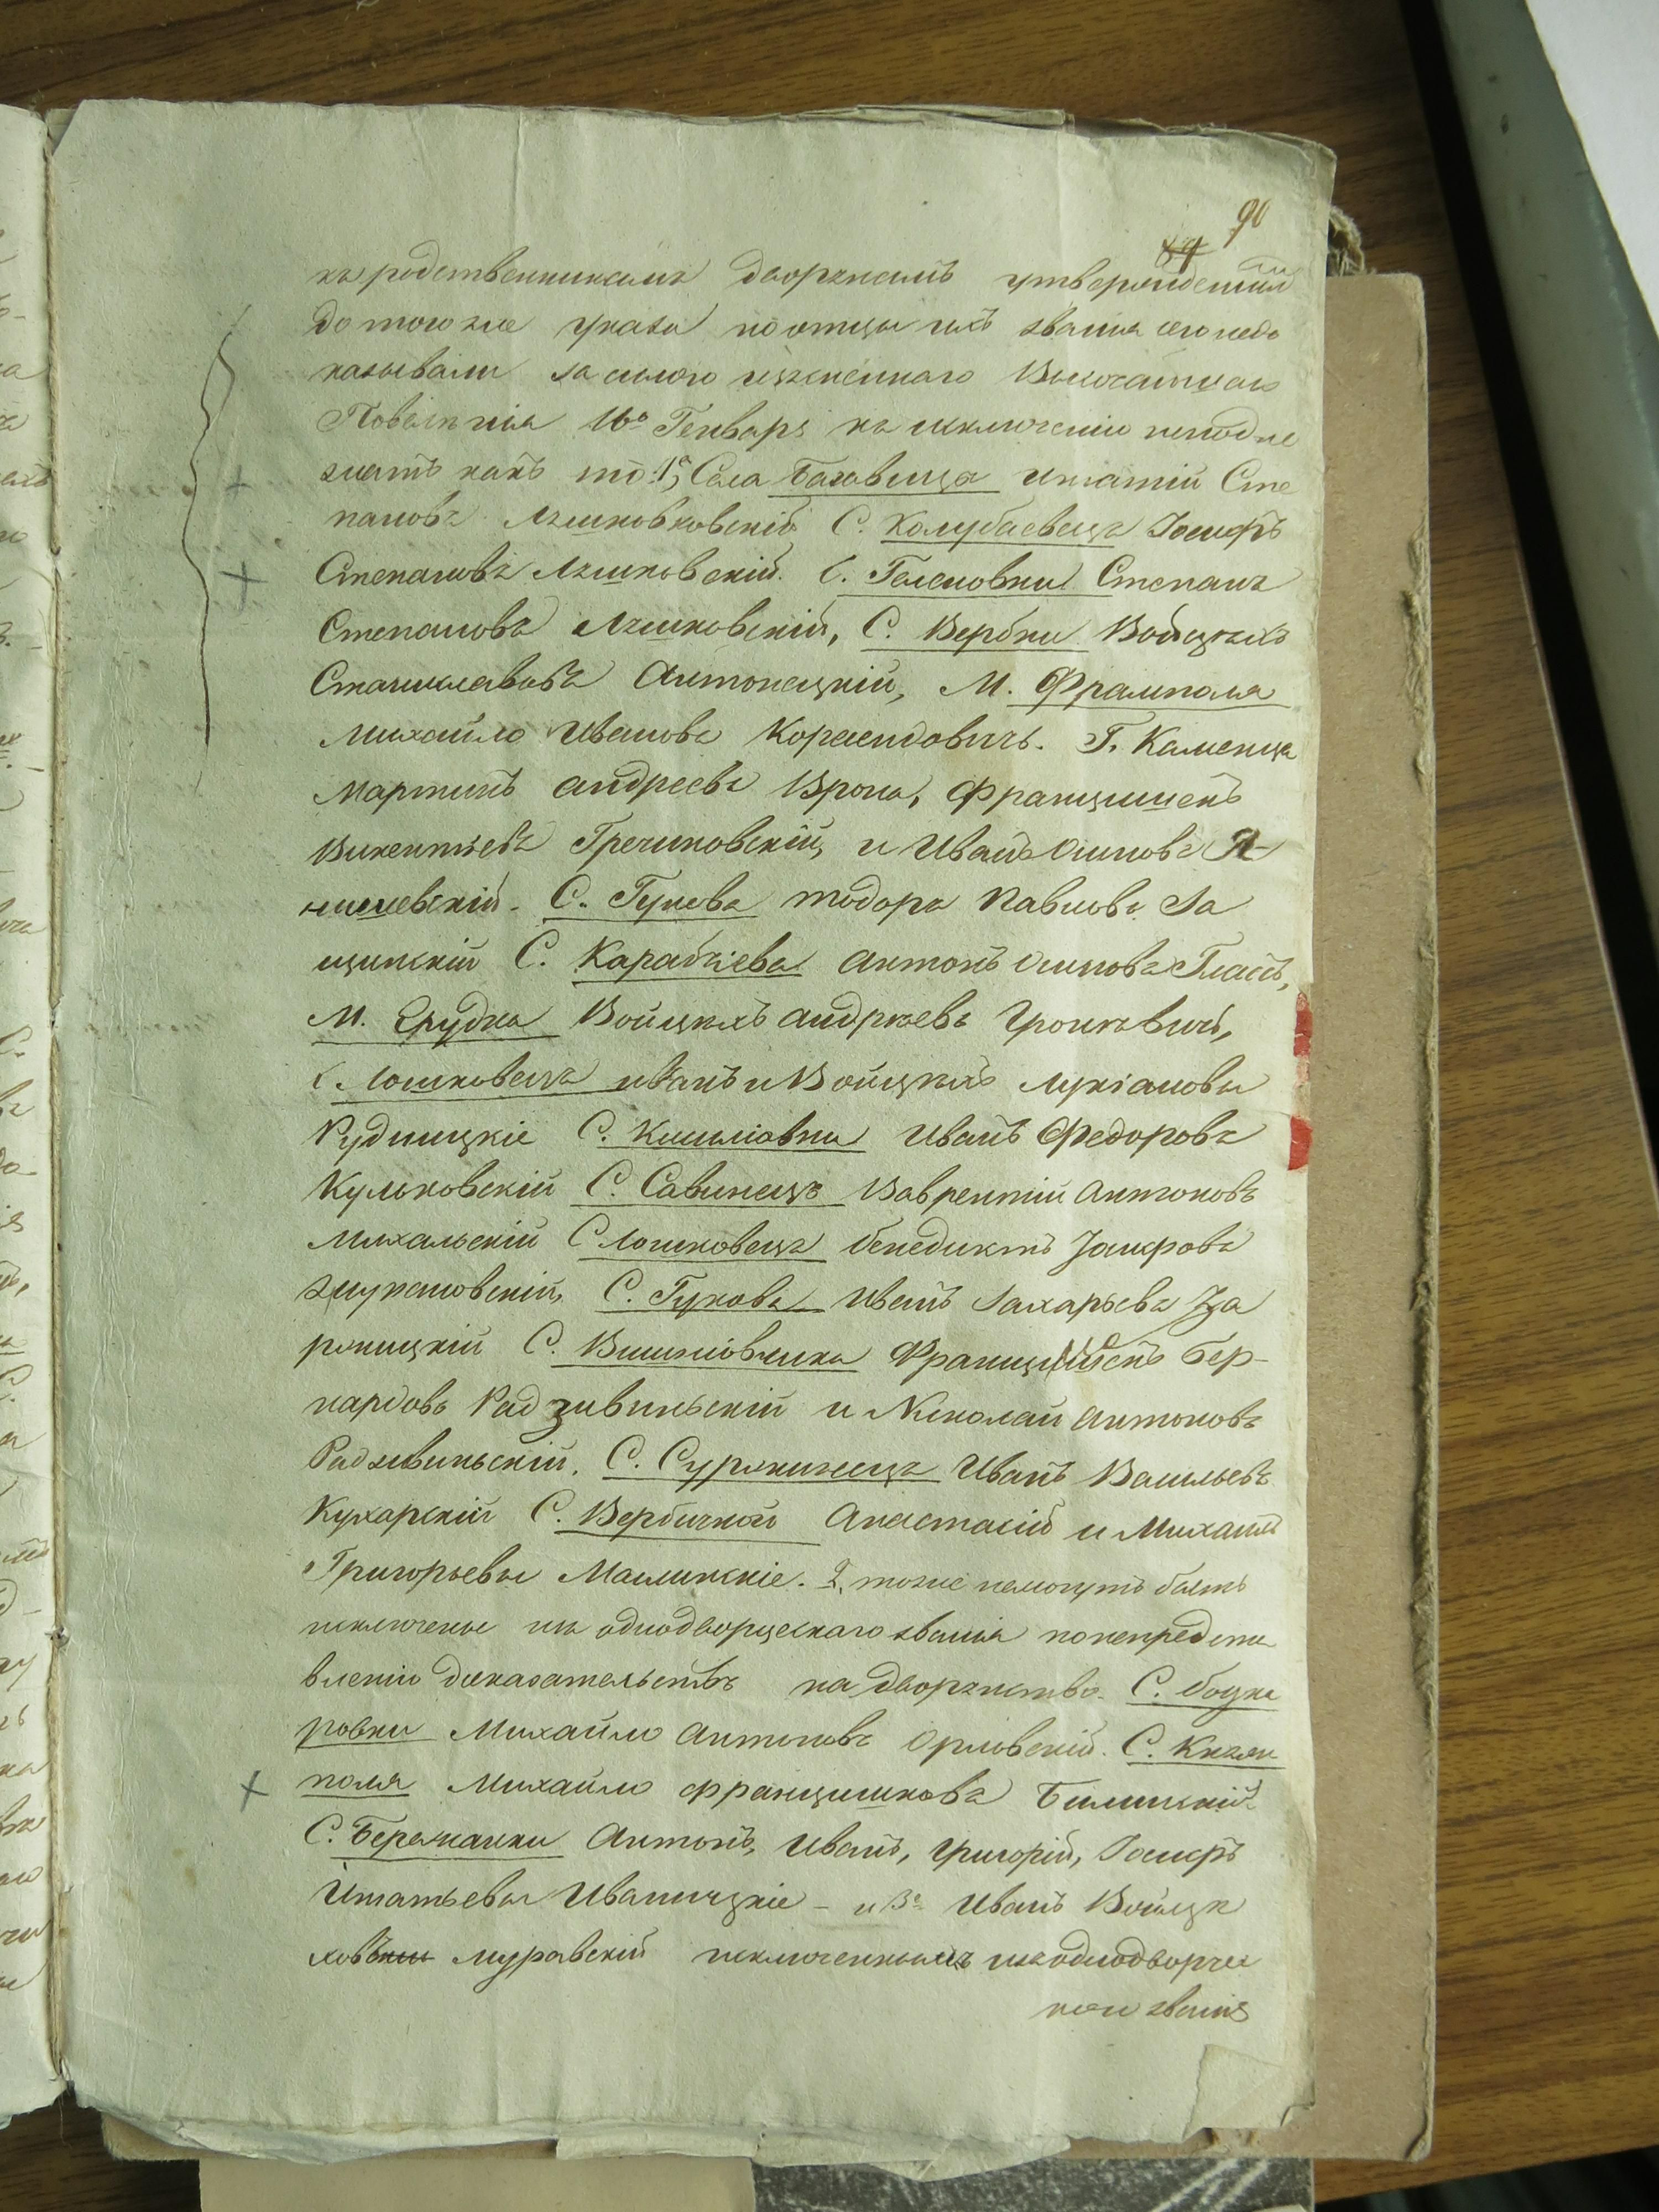 90
къ родственникамъ дворянамъ утвержденнымъ
до того же указа по отцы ихъ званія сего недо
казывали за силою изъясненнаго Высочайшаго
Повелѣнія 16о Генваря къ исключенію неподле
жатъ какъ то: 1е, Села Баговица Игнатій Сте
пановъ Ляшковковскій С. Колубаевецъ Іосифъ
Степановъ Ляшковскій. С. Гелетовки Степанъ
Степановъ Ляшковскій, С. Вербки Войцѣхъ
Станиславовъ Антонецкій, М. Фрамполя
Михайло Ивановъ Г. Каменца
Мартинъ Андреевъ Врона, Францишекъ
Викентьевъ Гречиковскій, и Иванъ Осиповъ Я-
нишевскій. С. Гукова Тодоръ Павловъ За
щинскій С. Карабчіева Антонъ Осиповъ
М. Войцѣхъ Андреевъ
С. Лошковецъ Иванъ и Войцѣхъ Лукіановы
Рудницкіе С. Киселіовки Иванъ Федоровъ
Кульковскій С. Савинецъ Вавреній Антоновъ
Михальскій С Лошковецъ Бенедиктъ Іосифовъ
Жураковскій, С. Гукова Иванъ Захарьевъ За
рѣницкій С. Вишніовчика Францишекъ Бер-
нардовъ Радзивинскій и Николай Антоновъ
Радзивинскій. С. Суржинецъ Иванъ Васильевъ
Кухарскій С. Вербичкой Анастасій и Михаилъ
Григорьевы Маслинскіе. 2, тоже немогутъ быть
исключены изъ однодворческаго званія по непредста
вленію доказательствъ на дворянство. С. Боцка
ровки Михайло Антоновъ Орловскій. С. Княж
поля Михайло Францишковъ Билинскій
С. Бережанки Антонъ, Иванъ, Григорій, Іосифъ
Игнатьевы Иваницкіе - и 3е Иванъ Войцѣ
ховъ Муравскій исключеннымъ изъ однодворчес
каго званія